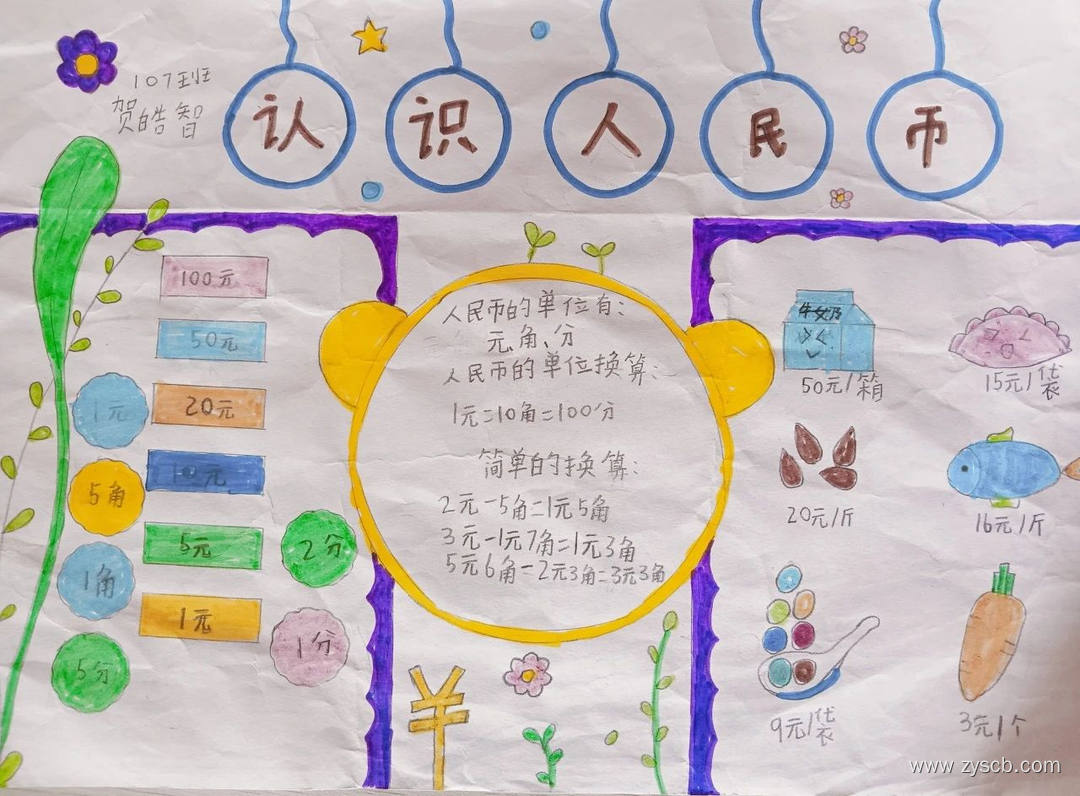 认识人民币
107班
贺皓智
100元
50元
20元
10元
5元
1元
1元
5角
1角
5分
2分
1分
人民币的单位有：
元、角、分
人民币的单位换算：
1元=10角=100分
简单的换算：
2元-5角=1元5角
3元-1元7角=1元3角
5元6角-2元3角=3元3角
牛奶
50元/箱
15元/袋
20元/斤
16元/斤
9元/袋
3元/个
www.zyscb.com